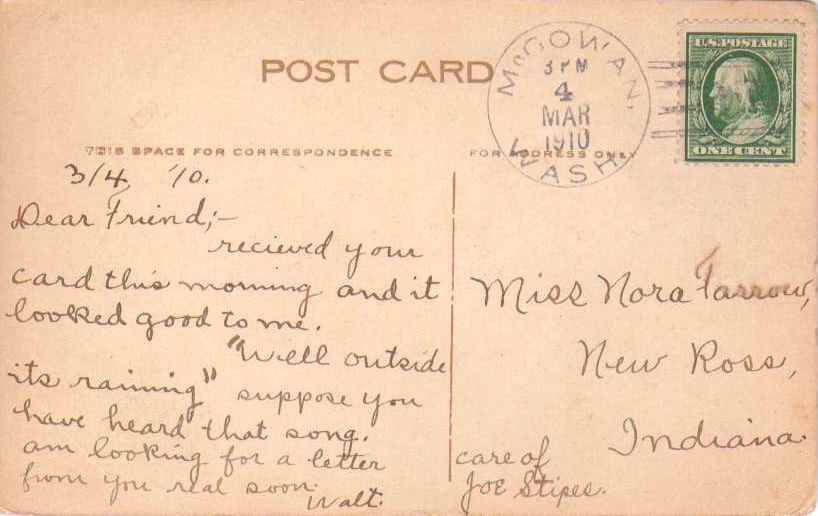 POST CARD
McGOWAN, WASH.
3 PM
4
MAR
1910
U.S. POSTAGE
ONE CENT
THIS SPACE FOR CORRESPONDENCE
FOR ADDRESS ONLY
3/4, '10.
Dear Friend;—
recieved your
card this morning and it
looked good to me.
"Well outside
its raining" suppose you
have heard that song.
am looking for a letter
from you real soon.
Walt.
Miss Nora Farrow,
New Ross,
Indiana.
care of
JOE Stipes.